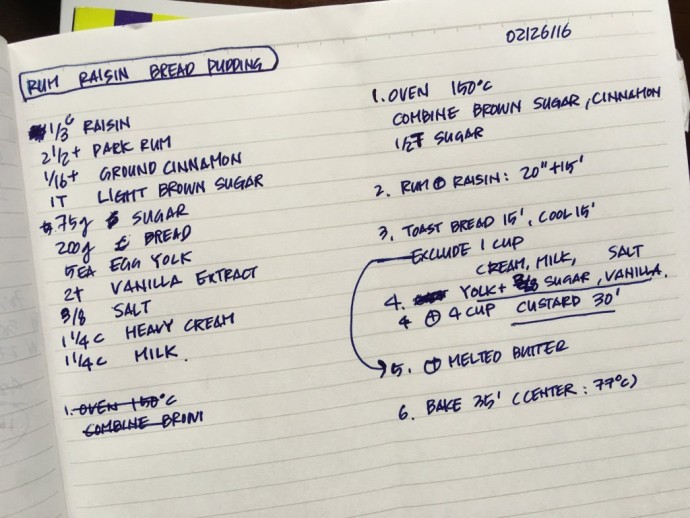 02/26/16
RUM RAISIN BREAD PUDDING
1/3 C RAISIN
2 1/2 t DARK RUM
1/16 t GROUND CINNAMON
1T LIGHT BROWN SUGAR
75g SUGAR
200g BREAD
5EA EGG YOLK
2t VANILLA EXTRACT
3/8 SALT
1 1/4 C HEAVY CREAM
1 1/4 C MILK.
1. OVEN 150°C
COMBINE BROWN
1. OVEN 150°C
COMBINE BROWN SUGAR, CINNAMON
1/2T SUGAR
2. RUM ⊕ RAISIN: 20"+15'
3. TOAST BREAD 15', COOL 15'
EXCLUDE 1 CUP
CREAM, MILK, SALT
4. YOLK + SUGAR, VANILLA.
4 ⊕ 4 CUP CUSTARD 30'
5. ⊕ MELTED BUTTER
6. BAKE 35' (CENTER: 77°C)